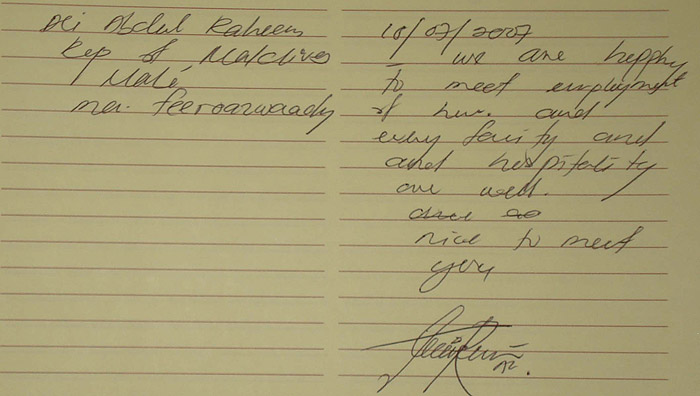 Ali Abdul Raheem
Rep of Maldives
Malé
ma. feeroazwaady
10/07/2007
we are happhy
to meet employment
of hur. and
every fasity and
and hospitality
are well.
nice to meet
you